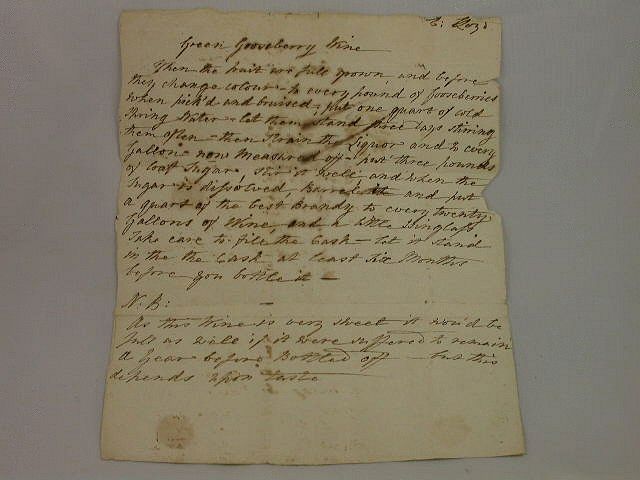 Green Gooseberry Wine
When the fruit are full grown, and before
they change colour - to every pound of Gooseberries
when pick'd and bruised, put one quart of cold
Spring Water - let them stand three days stirring
them often - then strain the Liquor and to every
Gallon now measured off - put three pounds
of Loaf Sugar, stir it well, and when the
Sugar is dissolved, barrel it and put
a quart of the best Brandy to every twenty
Gallons of Wine, and a little Isinglass
Take care to fill the Cask - let it stand
in the the Cask at least six Months
before you bottle it -
N. B: -
As this Wine is very sweet it wou'd be
full as well if it were suffered to remain
a Year before Bottled off - but this
depends upon taste